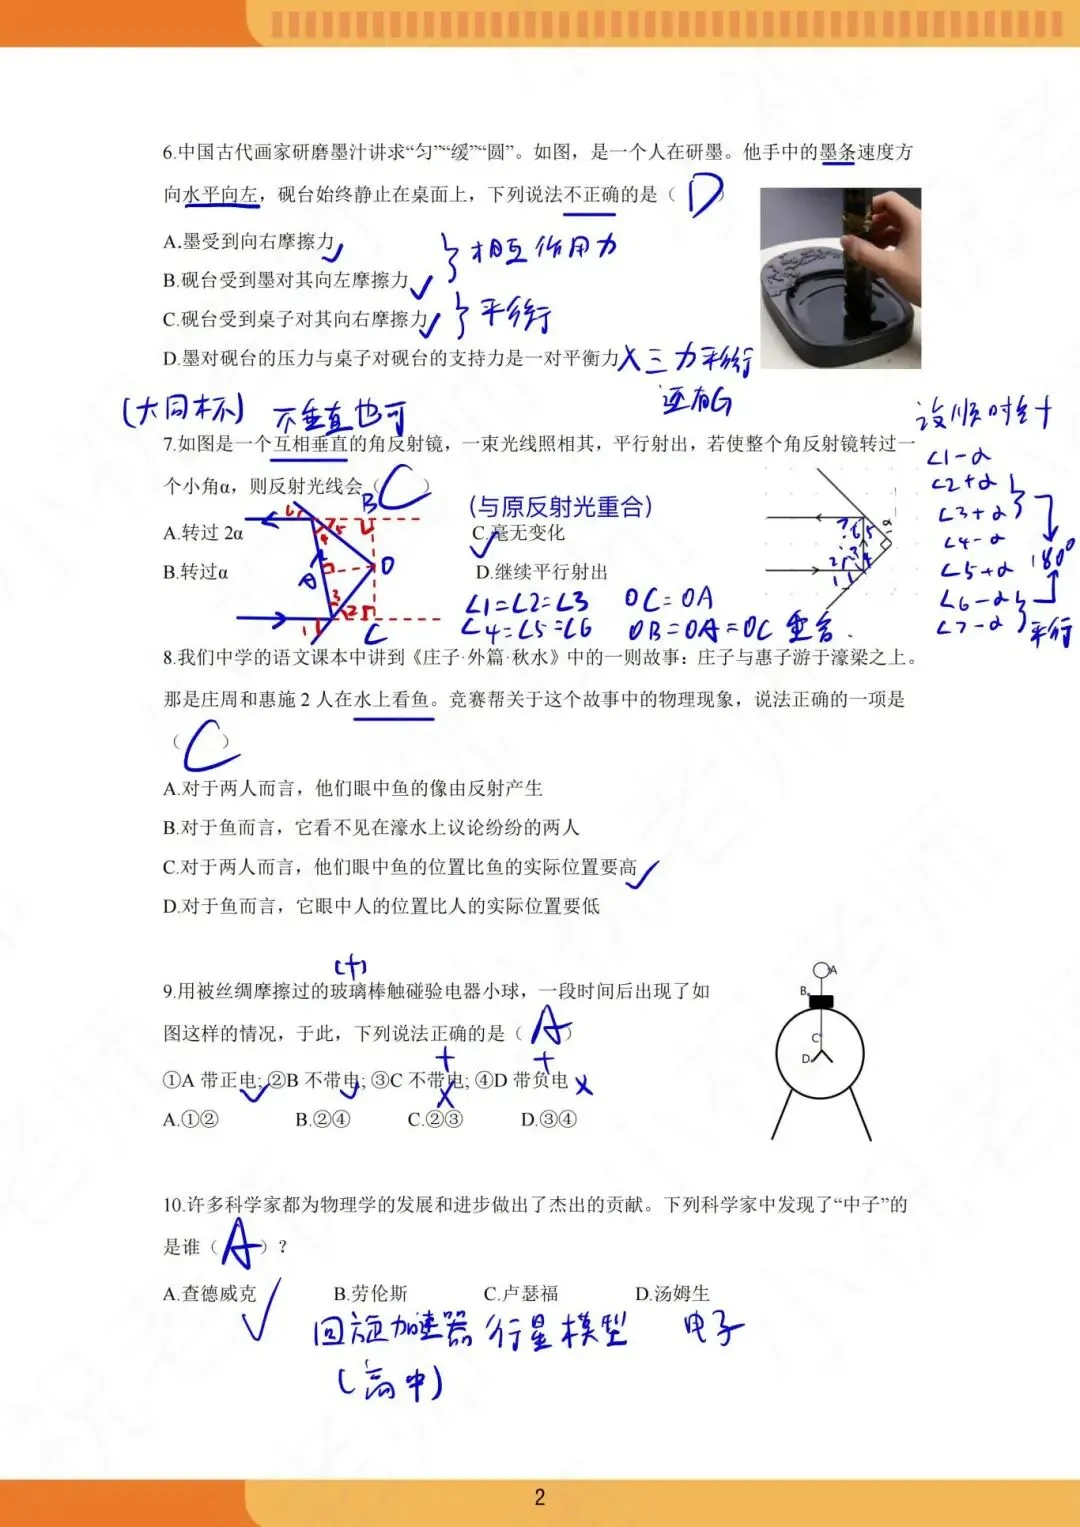 6.中国古代画家研磨墨汁讲求“匀”“缓”“圆”。如图，是一个人在研墨。他手中的墨条速度方
向水平向左，砚台始终静止在桌面上，下列说法不正确的是（ D ）
A.墨受到向右摩擦力
B.砚台受到墨对其向左摩擦力
相互作用力
C.砚台受到桌子对其向右摩擦力
平衡
D.墨对砚台的压力与桌子对砚台的支持力是一对平衡力
X 三力平衡
还有G
(大同杯) 不垂直也可
7.如图是一个互相垂直的角反射镜，一束光线照相其，平行射出，若使整个角反射镜转过一
个小角α，则反射光线会（ C ）
A.转过 2α
(与原反射光重合)
C.毫无变化
B.转过α
D.继续平行射出
∠1=∠2=∠3 OC=OA
∠4=∠5=∠6 OB=OA=OC 重合.
设顺时针
∠1-α
∠2+α
∠3+α
∠4-α
∠5+α 180°
∠6-α
∠7-α 平行
8.我们中学的语文课本中讲到《庄子·外篇·秋水》中的一则故事：庄子与惠子游于濠梁之上。
那是庄周和惠施 2 人在水上看鱼。竞赛帮关于这个故事中的物理现象，说法正确的一项是
（ C ）
A.对于两人而言，他们眼中鱼的像由反射产生
B.对于鱼而言，它看不见在濠水上议论纷纷的两人
C.对于两人而言，他们眼中鱼的位置比鱼的实际位置要高
D.对于鱼而言，它眼中人的位置比人的实际位置要低
(+)
9.用被丝绸摩擦过的玻璃棒触碰验电器小球，一段时间后出现了如
图这样的情况，于此，下列说法正确的是（ A ）
+ +
①A 带正电; ②B 不带电; ③C 不带电; ④D 带负电 X
X
A.①② B.②④ C.②③ D.③④
A
B
C
D
10.许多科学家都为物理学的发展和进步做出了杰出的贡献。下列科学家中发现了“中子”的
是谁（ A ）？
A.查德威克 B.劳伦斯 C.卢瑟福 D.汤姆生
回旋加速器 行星模型 电子
(高中)
2